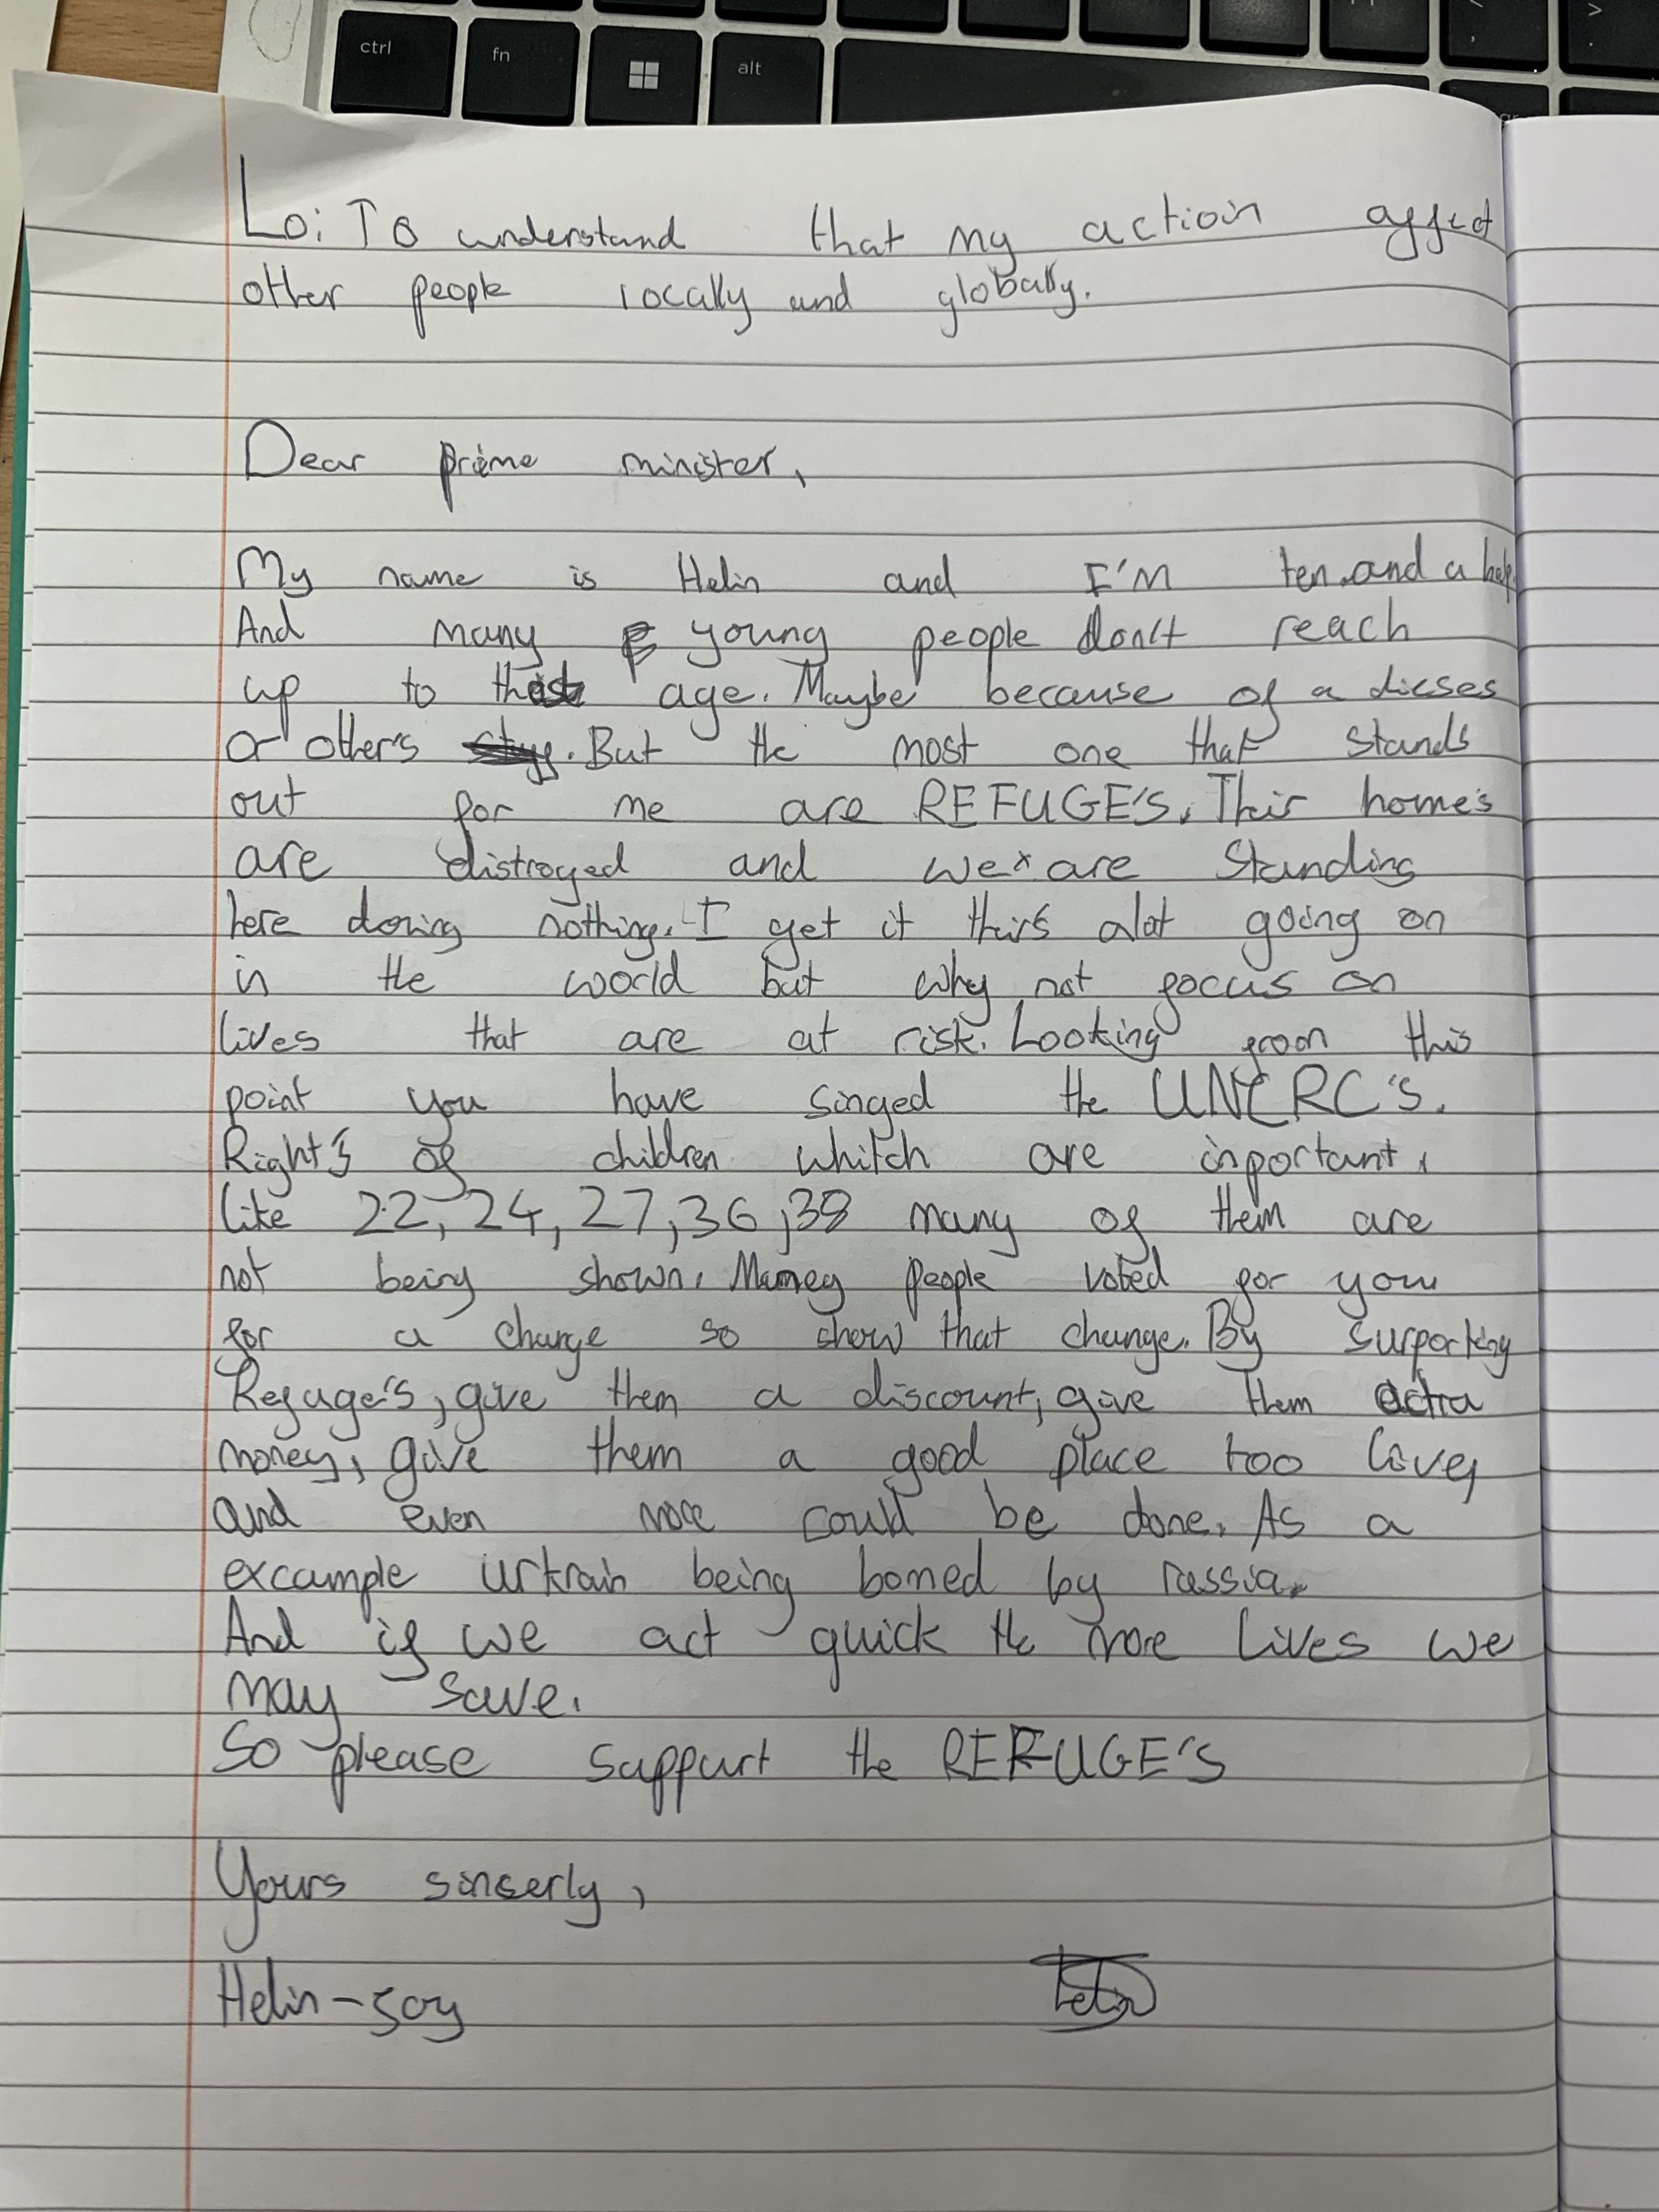 ctrl fn alt
Lo: To understand that my actioin affect
other people locally and globally.
Dear prime minister,
My name is Helin and I'm ten and a half.
And many young people don't reach
up to this age. Maybe because of a dieses
or other's. But the most one that stands
out for me are REFUGE'S. Thir home's
are distroyed and we are standing
here doing nothing. I get it thir's alot going on
in the world but why not focus on
lives that are at risk. Looking from this
point you have singed the UNCRC's.
Right's of children whitch are inportant,
like 22, 24, 27, 36, 38 many of them are
not being shown. Maney people voted for you
for a change so show that change. By surporting
Refuge's, give them a discount, give them extra
money, give them a good place too live,
and even more could be done. As a
excample urkrain being bomed by russia.
And if we act quick the more lives we
may save.
So please suppurt the REFUGE'S
Yours sinserly,
Helin-soy
Helin